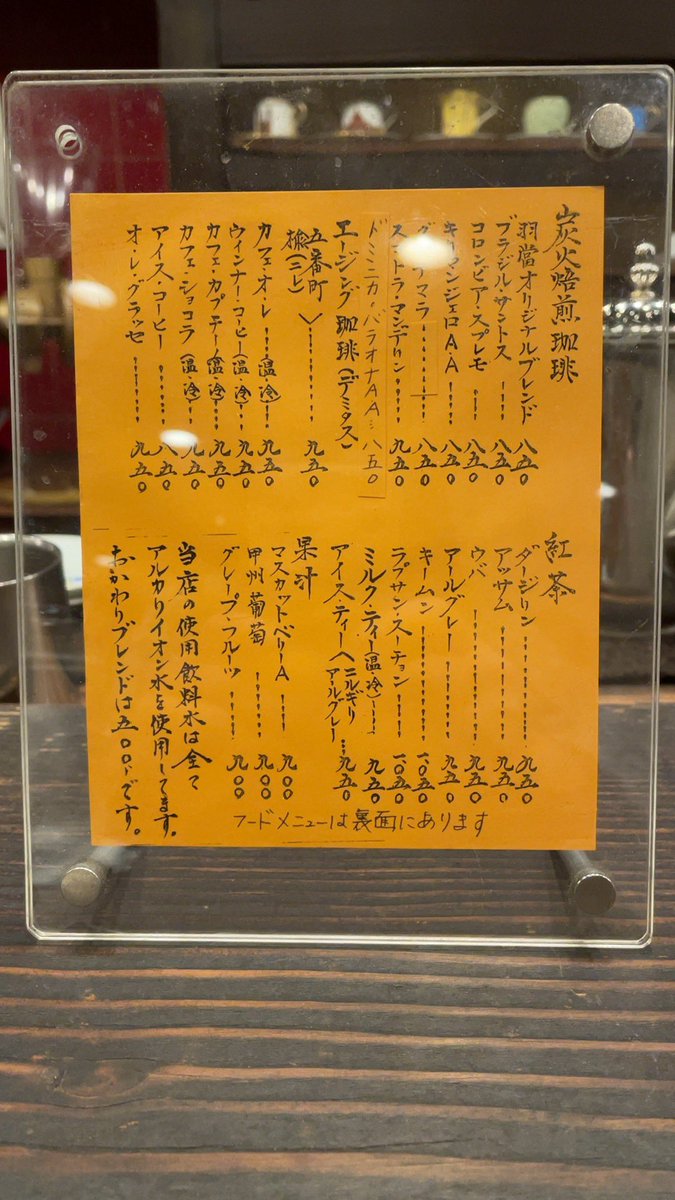 炭火焙煎珈琲
羽當オリジナルブレンド 八五〇
ブラジル・サントス 八五〇
コロンビア・スプレモ 八五〇
キリマンジェロA・A 八五〇
グァテマラ 八五〇
スマトラ・マンデリン 九五〇
ドミニカ・バラオナAA 八五〇
エージング珈琲(デミタス)
五番町
楡(ニレ) 九五〇
カフェ・オ・レ(温・冷) 九五〇
ウィンナー・コーヒー(温・冷) 九五〇
カフェ・カプチーノ(温・冷) 九五〇
カフェ・ショコラ(温・冷) 九五〇
アイス・コーヒー 八五〇
オ・レ・グラッセ 九五〇
紅茶
ダージリン 九五〇
アッサム 九五〇
ウバ 九五〇
アールグレー 九五〇
キームン 一〇五〇
ラプサン・スーチョン 一〇五〇
ミルク・ティー(温・冷) 九五〇
アイスティー ニルギリ アールグレー 九五〇
果汁
マスカットベリーA 九〇〇
甲州葡萄 九〇〇
グレープ・フルーツ 九〇〇
当店の使用飲料水は全て
アルカリイオン水を使用してます。
おかわりブレンドは五〇〇です。
フードメニューは裏面にあります